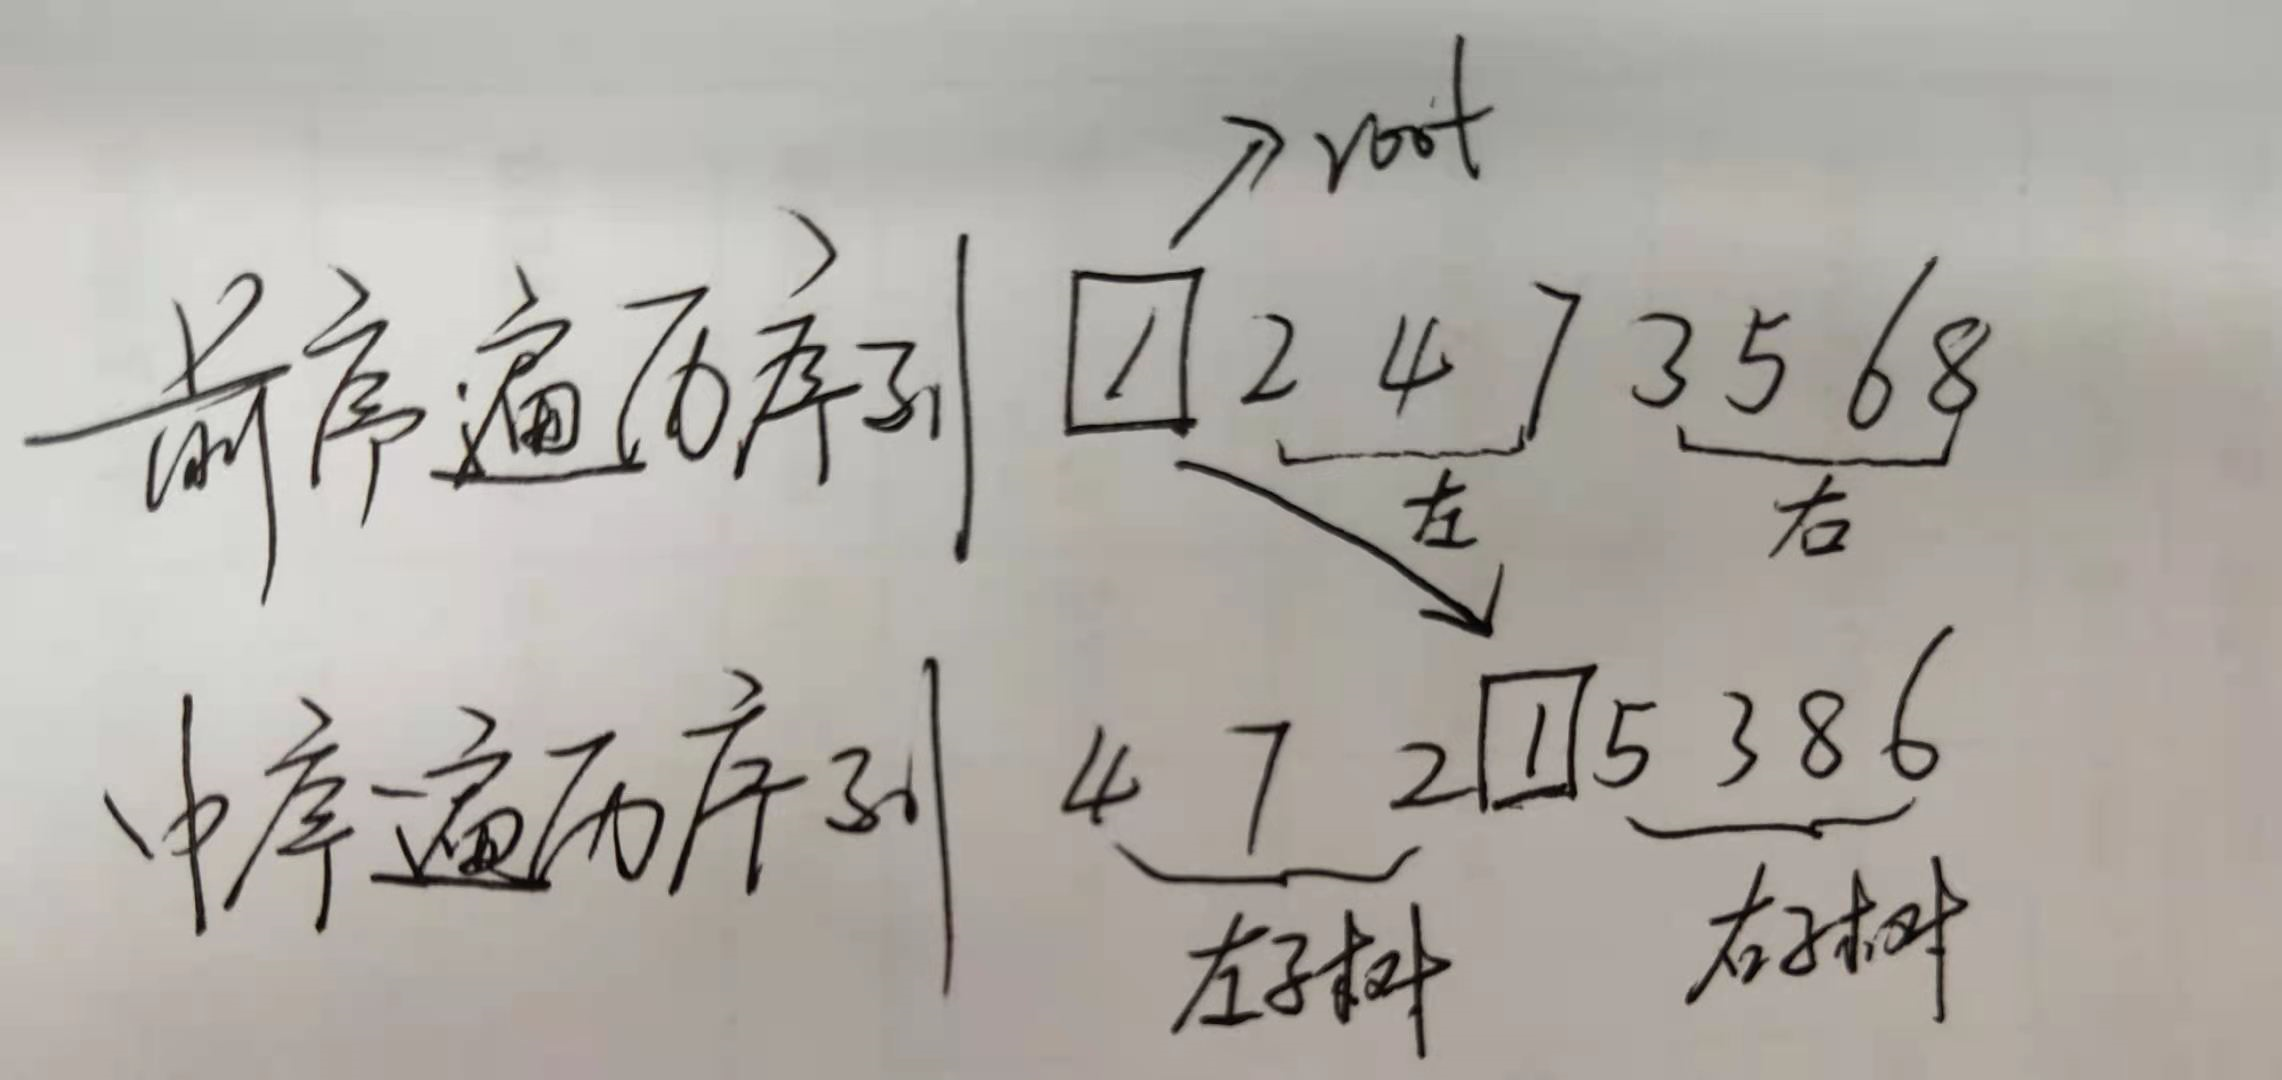 root
前序遍历序列 1 2 4 7 3 5 6 8
左 右
中序遍历序列 4 7 2 1 5 3 8 6
左子树 右子树